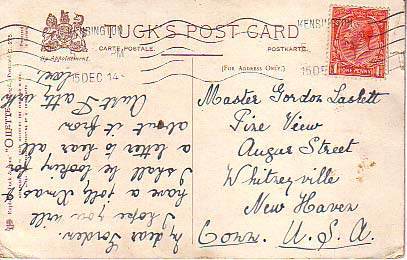 TUCK'S POST CARD
CARTE POSTALE.
POSTKARTE.
By Appointment.
(FOR ADDRESS ONLY.)
KENSINGTON
15 DEC 14
KENSINGTON
15 DEC
ONE PENNY
Master Gordon Laslett
Pine View
Augur Street
Whitneyville
New Haven
Conn. U.S.A.
My dear Gordon.
I hope you will
have a jolly Xmas &
I shall be looking for
a letter to hear all
about it from
Aunt Fatty with
love.
"OILETTE"